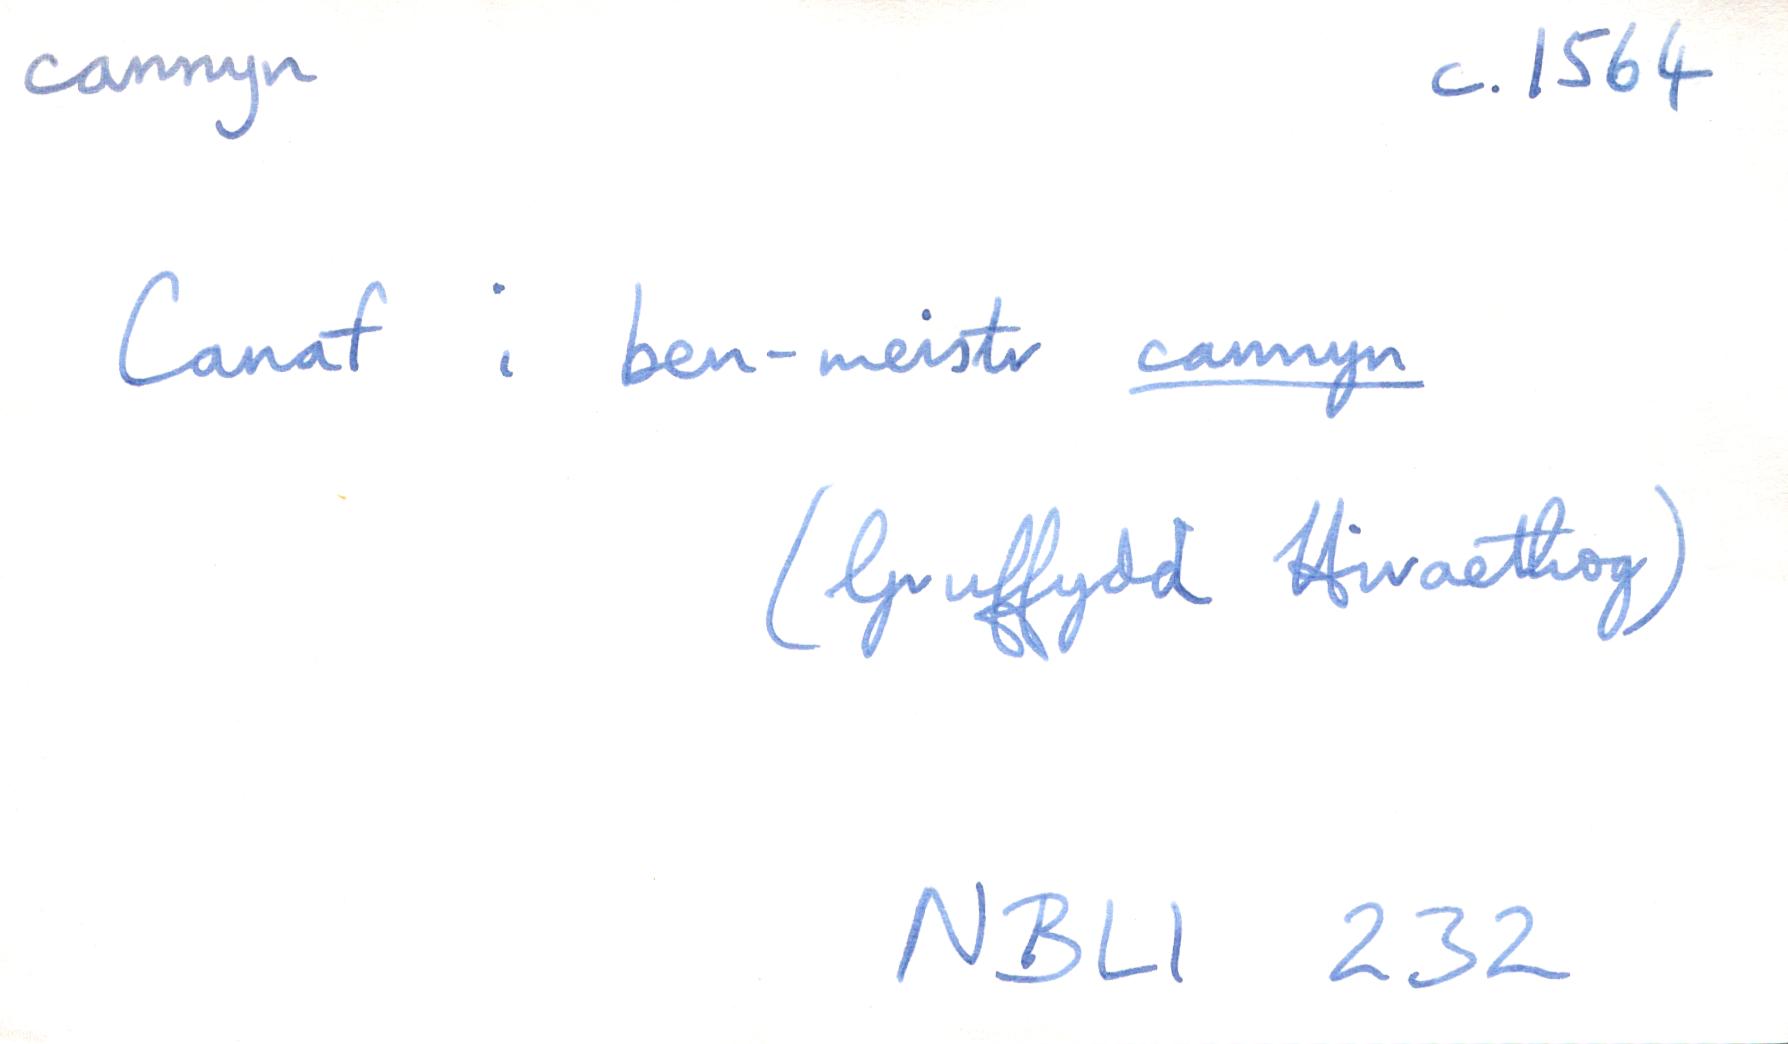 cannyn c. 1564
Canaf i ben-meistr cannyn
(Gruffydd Hiraethog)
NBLl 232